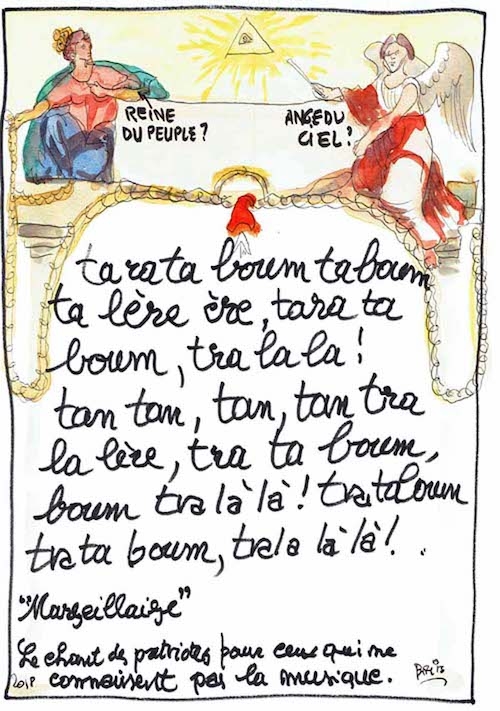 REINE
DU PEUPLE?
ANGE DU
CIEL?
ta ra ta boum taboum
ta lère ère, tara ta
boum, tra la la!
tan tan, tan, tan tra
la lère, tra ta boum,
boum tra là là! tratatoum
trata boum, trala là là!.
"Marseillaise"
Le chant des patriotes pour ceux qui ne
connaissent pas la musique.
2018